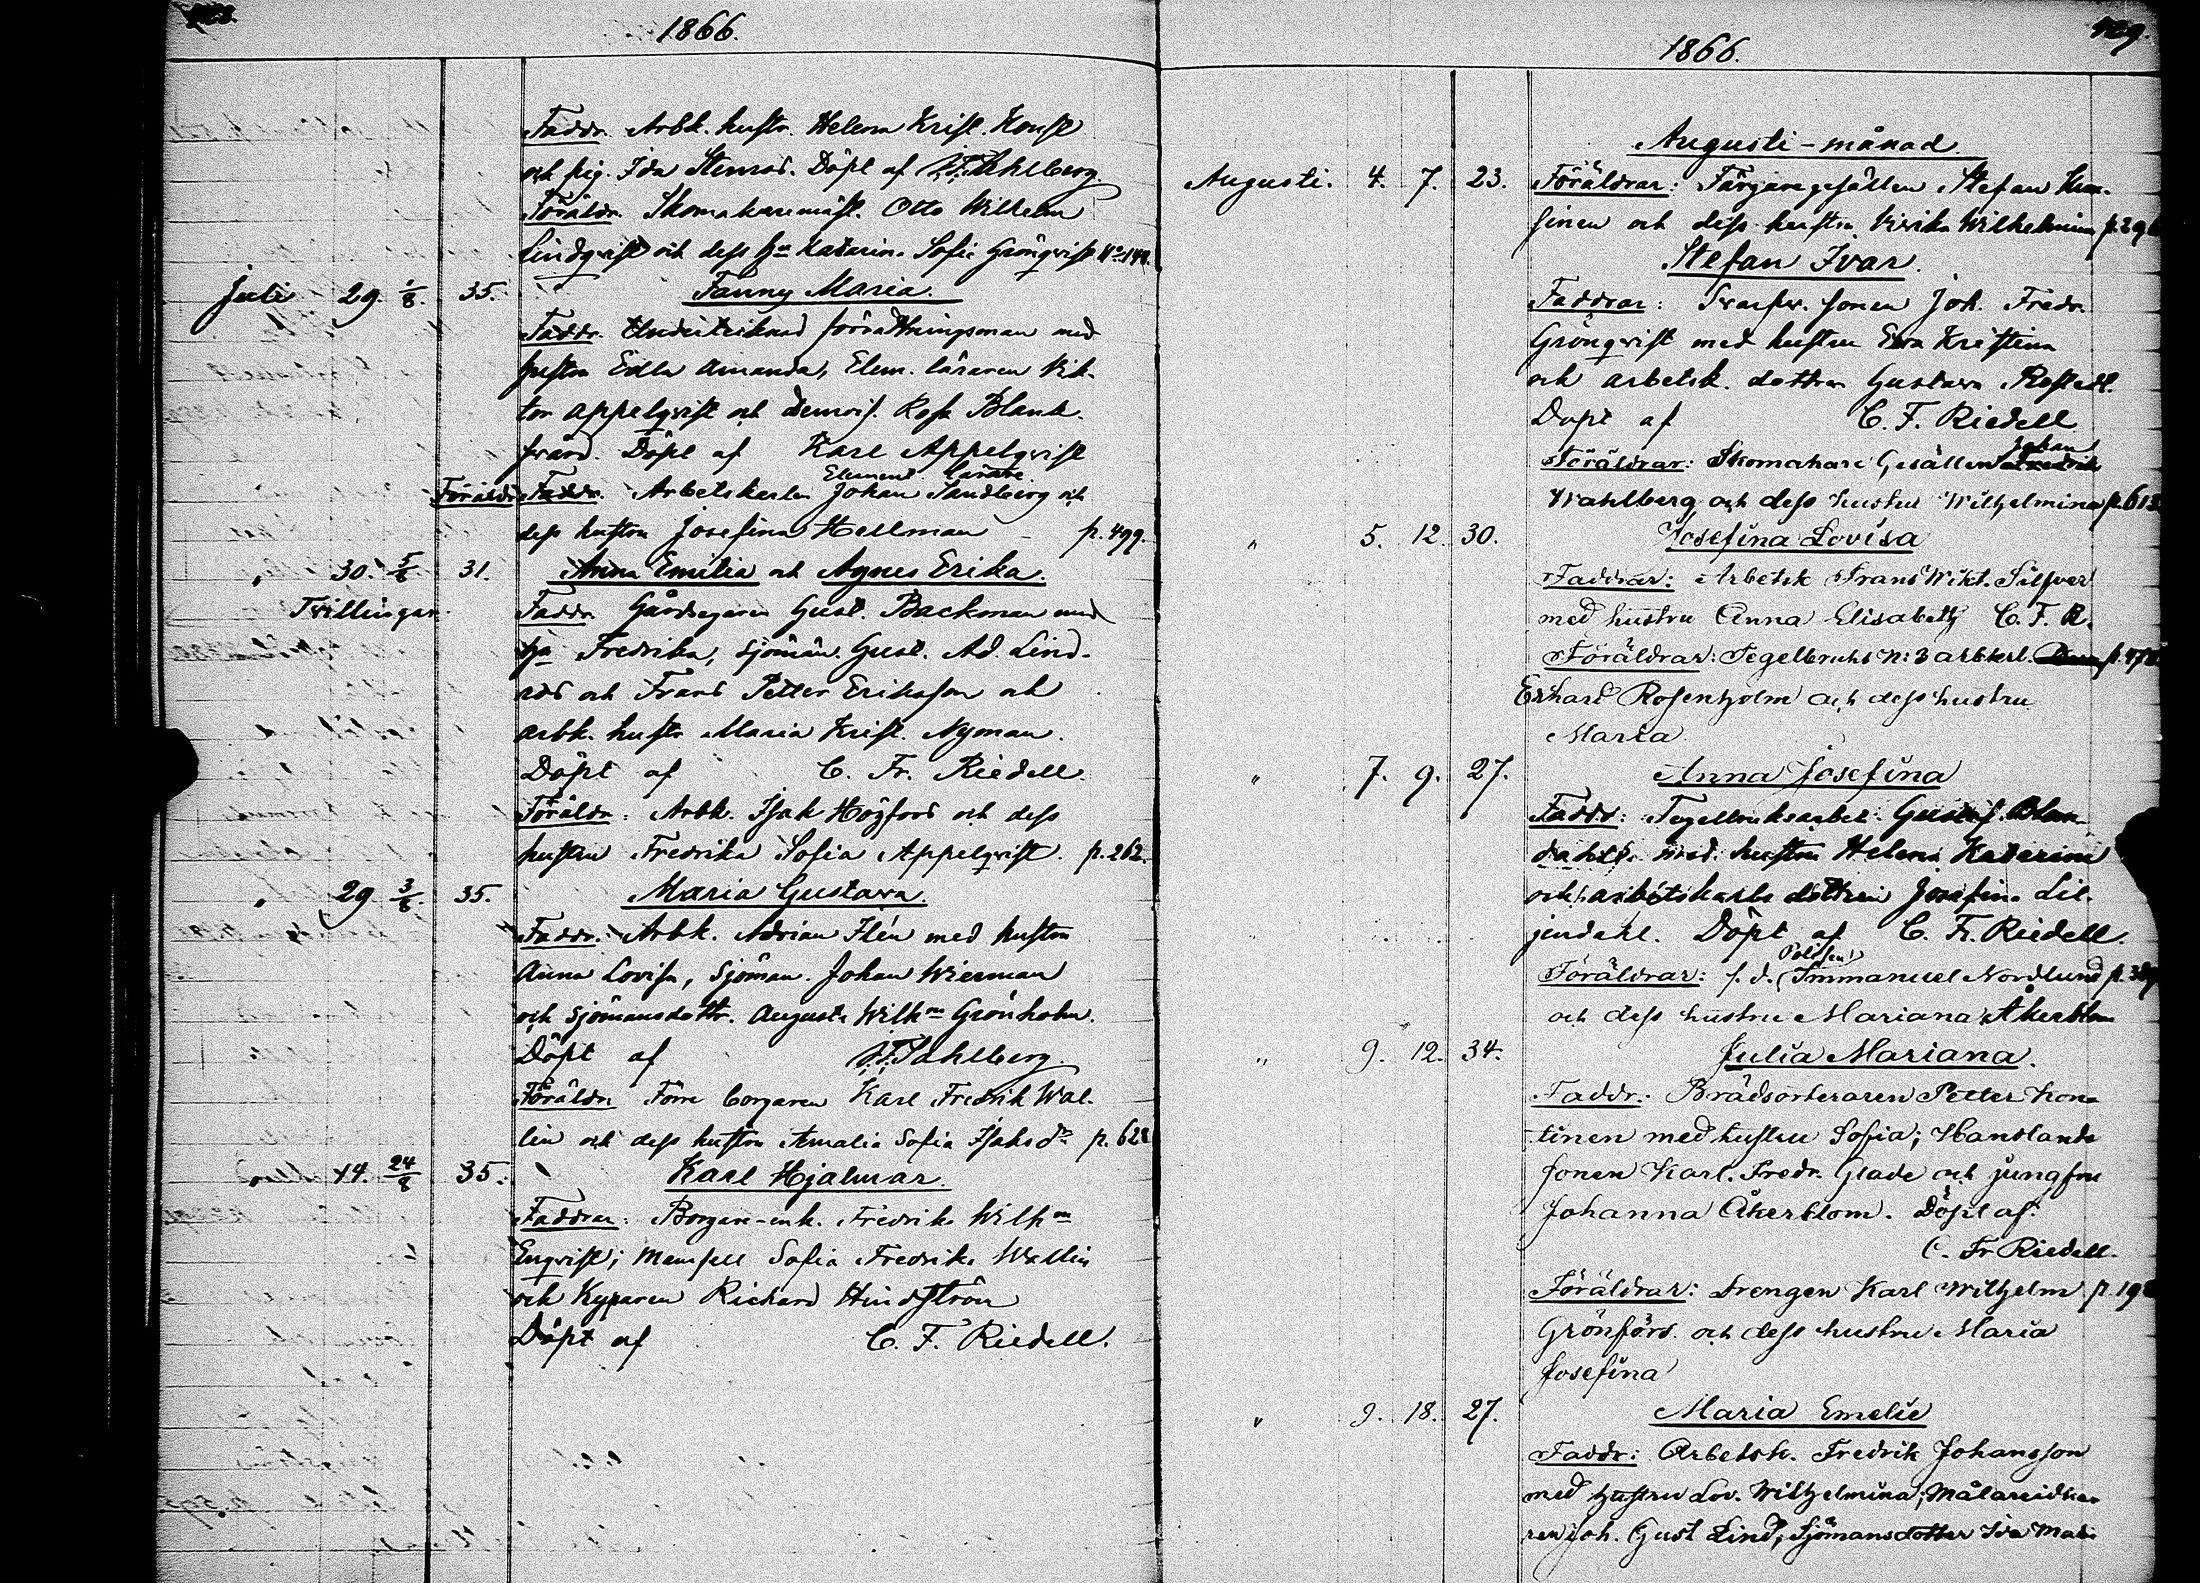 1866.
Faddr. Arbk. hustr. Helena Krist. Konst
och pig. Ida Stenros. Döpt af Sahlberg.
Föräldr. Skomakaremäst. Otto Wilhelm
Lindqvist och dess hu Katarin. Sofia Grönqvist
Juli 29. 1/8. 35. Fanny Maria.
Faddr. Undertecknad förrättningsman med
hustru Edla Amanda, Elem. läraren Vik-
tor Appelqvist och Demois. Rosa Blank
frård. Döpt af Karl Appelqvist
Element. lärare.
Föräldr. Faddr. Arbetskarlen Johan Sandberg och
dess hustru Josefina Hellman p. 499.
" 30. 5/8 31. Anna Emilia och Agnes Erika.
Tvillingar. Faddr. Gårdsegaren Gust. Backman med
hu Fredrika, sjömän. Gust. Ad. Lind-
ros och Frans Petter Eriksson och
arbk. hustr Maria Krist. Nyman.
Döpt af C. Fr. Riedell.
Föräldr: Arbk. Isak Högfors och dess
hustru Fredrika Sofia Appelqvist. p. 262.
" 29 3/8. 35. Maria Gustava.
Faddr. Arbk. Adrian Ilén med hustru
Anna Lovisa, sjöman. Johan Wierman
och sjömansdottr. Augusta Wilhna Grönholm.
Döpt af Sahlberg.
Föräldr. Förre borgaren Karl Fredrik Wal-
lin och dess hustru Amalia Sofia Isaksdr p. 621
" 14. 24/8 35. Karl Hjalmar.
Faddrar: Borgare-enk. Fredrika Wilhna
Enqvist; Mamsell Sofia Fredrika Wallin
och Kyparen Richard Hindström
Döpt af C. F. Riedell.
129.
1866.
Augusti-månad.
Augusti. 4. 7. 23. Föräldrar: Färgaregesällen Stefan
sinen och dess hustru Ulrika Wilhelmina
Stefan Ivar.
Faddrar: Svarfv. sonen Joh. Fredr.
Grönqvist med hustru Eva Kristina
och arbetsk. dottren Gustava Rostedt.
Döpt af C. F. Riedell
Johan
Föräldrar: Skomakare Gesällen Fredrik
Wahlberg och dess hustru Wilhelmina p. 613
" 5. 12. 30. Josefina Lovisa
Faddrar: Arbetsk Frans Wikt. Silfver
med hustru Anna Elisabeth C. F. R.
Föräldrar: Tegelbruks N:3 arbkrl.
Erhard Rosenholm och dess hustru
Maria
" 7. 9. 27. Anna Josefina
Faddr: Tegelbruksarbet. Gustaf Blom
dahl med hustru Helena Katarina
och arbetskarls dottren Josefina Lil-
jendahl. Döpt af C. Fr. Riedell.
Föräldrar: f. d. Immanuel Nordlund
och dess hustru Mariana Åkerblom
" 9. 12. 34. Julia Mariana.
Faddr. Brädsorteraren Petter Kon
tinen med hustru Sofia; Handlande
sonen Karl. Fredr. Glade och jungfru
Johanna Åkerblom. Döpt af:
C. Fr Riedell.
Föräldrar: Drengen Karl Wilhelm
Grönfors. och dess hustru Maria
Josefina
" 9. 18. 27. Maria Emelie
Faddr: Arbetsk. Fredrik Johansson
med hustru Lov. Wilhelmina;
ren Joh. Gust Lind, Sjömansdotter Ida Mat